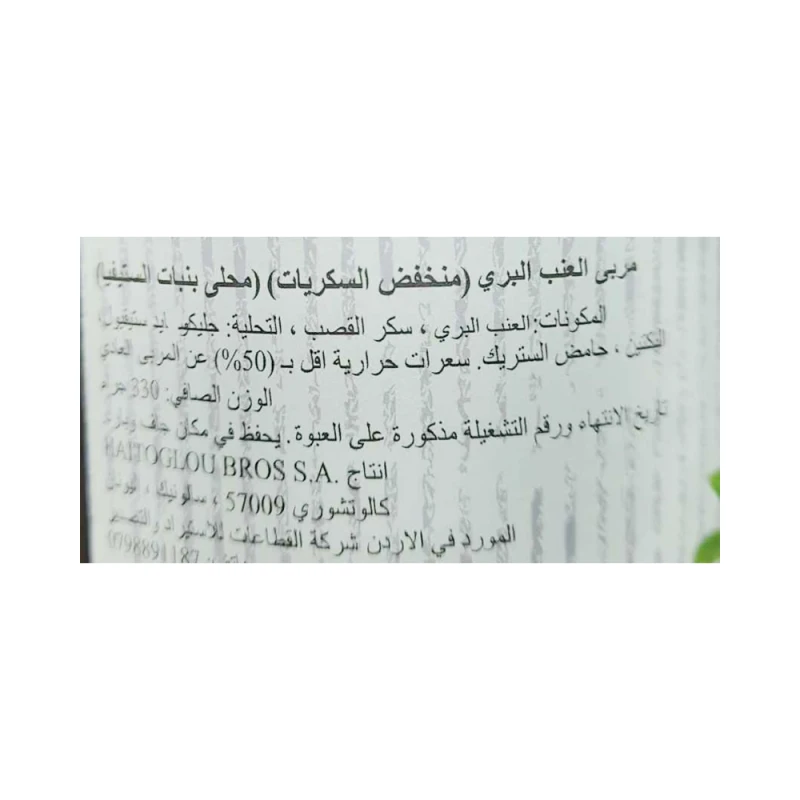 مربى العنب البري (منخفض السكريات) (محلى بنبات الستيفيا)
المكونات: العنب البري ، سكر القصب ، التحلية: جليكوسايد ستيفيول،
البكتين ، حامض الستريك. سعرات حرارية اقل بـ (50%) عن المربى العادي
الوزن الصافي: 330 جرام
تاريخ الانتهاء ورقم التشغيلة مذكورة على العبوة. يحفظ في مكان جاف وبارد
انتاج HAITOGLOU BROS S.A.
كالوتشوري 57009 ، سالونيك ، اليونان
المورد في الاردن شركة القطاعات للاستيراد والتصدير
0798891187